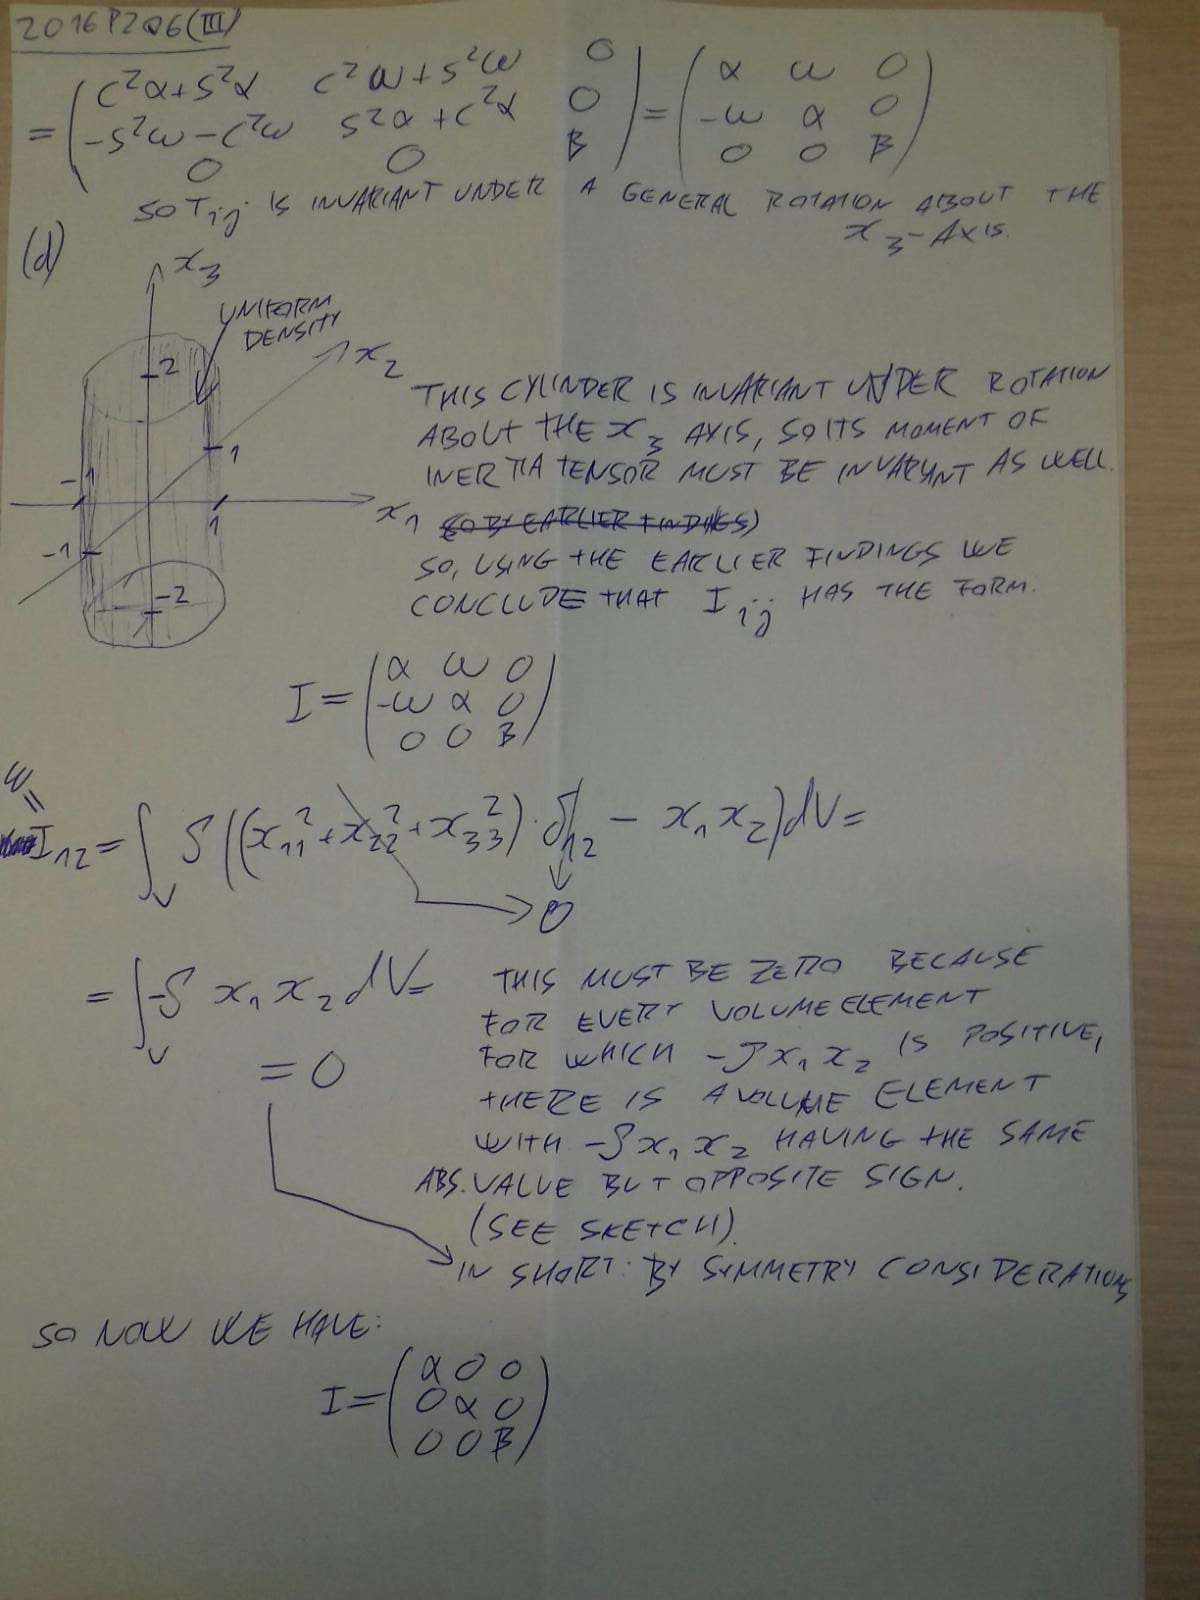 2016 P2Q6(III)
= ( c²α+s²α  c²ω+s²ω  0
-s²ω-c²ω  s²α+c²α  0
0  0  β ) = ( α  ω  0
-ω  α  0
0  0  β )
SO Tij IS INVARIANT UNDER A GENERAL ROTATION ABOUT THE
x3-AXIS.
(d)
x3
UNIFORM
DENSITY
2
x2
1
-1
x1
1
-1
-2
THIS CYLINDER IS INVARIANT UNDER ROTATION
ABOUT THE x3 AXIS, SO ITS MOMENT OF
INERTIA TENSOR MUST BE INVARIANT AS WELL.
SO BY EARLIER FINDINGS
SO, USING THE EARLIER FINDINGS WE
CONCLUDE THAT Iij HAS THE FORM.
I = ( α ω 0
-ω α 0
0 0 β )
ω
=
I12 = ∫V ρ((x11²+x22²+x33²)·δ12 - x1x2)dV =
0
= ∫V -ρ x1x2 dV =
= 0
THIS MUST BE ZERO BECAUSE
FOR EVERY VOLUME ELEMENT
FOR WHICH -ρx1x2 IS POSITIVE,
THERE IS A VOLUME ELEMENT
WITH -ρx1x2 HAVING THE SAME
ABS. VALUE BUT OPPOSITE SIGN.
(SEE SKETCH).
IN SHORT: BY SYMMETRY CONSIDERATIONS
SO NOW WE HAVE:
I = ( α 0 0
0 α 0
0 0 β )